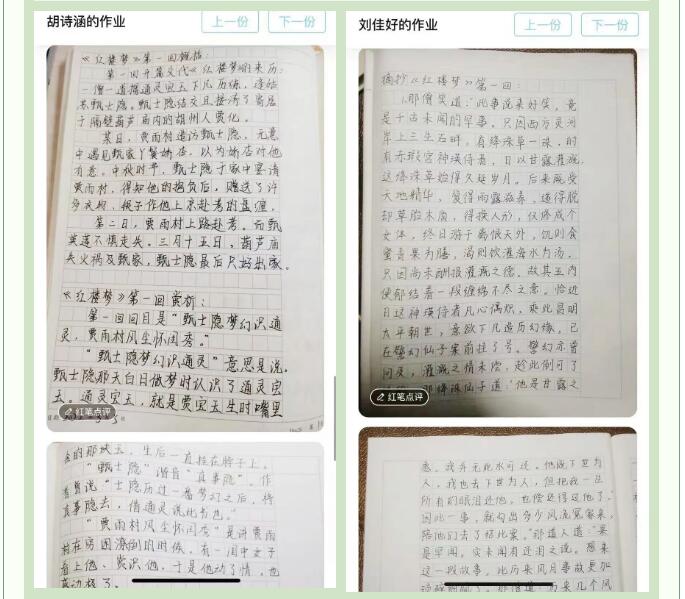 胡诗涵的作业
上一份
下一份
《红楼梦》第一回概括：
第一回开篇交代《红楼梦》的来历：
一僧一道携通灵宝玉下凡历练，逢姑
苏甄士隐。甄士隐结交且接济了寄居
于隔壁葫芦庙内的胡州人贾化。
某日，贾雨村造访甄士隐，无意
中遇见甄家丫鬟娇杏，以为娇杏对他
有意。中秋时节，甄士隐于家中宴请
贾雨村，得知他的抱负后，赠送了许
多衣物、银子作他上京赴考的盘缠。
第二日，贾雨村上路赴考。而甄
英莲不慎走失。三月十五日，葫芦庙
失火祸及甄家，甄士隐最后只好出家。
《红楼梦》第一回赏析：
第一回回目是“甄士隐梦幻识通
灵，贾雨村风尘怀闺秀。”
“甄士隐梦幻识通灵”意思是说。
甄士隐那天白日做梦时认识了通灵宝
玉。通灵宝玉，就是贾宝玉生时嘴里
红笔点评
含的那块玉，生后一直挂在脖子上。
“甄士隐”谐音“真事隐”。作
者曾说“士隐历过一番梦幻之后，将
真事隐去，借通灵说此书也。”
“贾雨村风尘怀闺秀”是讲贾雨
村在穷困潦倒的时候，有一闺中女子
看上他、赏识他，于是他动了情，也
刘佳好的作业
上一份
下一份
摘抄《红楼梦》第一回：
那僧笑道：“此事说来好笑，竟
是千古未闻的罕事。只因西方灵河
岸上三生石畔，有绛珠草一株，时
有赤瑕宫神瑛侍者，日以甘露灌溉，
这绛珠草始得久延岁月。后来既受
天地精华，复得雨露滋养，遂得脱
却草胎木质，得换人形，仅修成个
女体，终日游于离恨天外，饥则食
蜜青果为膳，渴则饮灌愁海水为汤。
只因尚未酬报灌溉之德，故其五内
便郁结着一段缠绵不尽之意。恰近
日这神瑛侍者凡心偶炽，乘此昌明
太平朝世，意欲下凡造历幻缘，已
在警幻仙子案前挂了号。警幻亦曾
问及，灌溉之情未偿，趁此倒可了
那绛珠仙子道：“他是甘露之
红笔点评
惠，我并无此水可还。他既下世为
人，我也去下世为人，但把我一生
所有的眼泪还他，也偿还得过他了。”
因此一事，就勾出多少风流冤家来，
陪他们去了结此案。”那道人道：“果
是罕闻，实未闻有还泪之说。想来
这一段故事，比历来风月事故更加